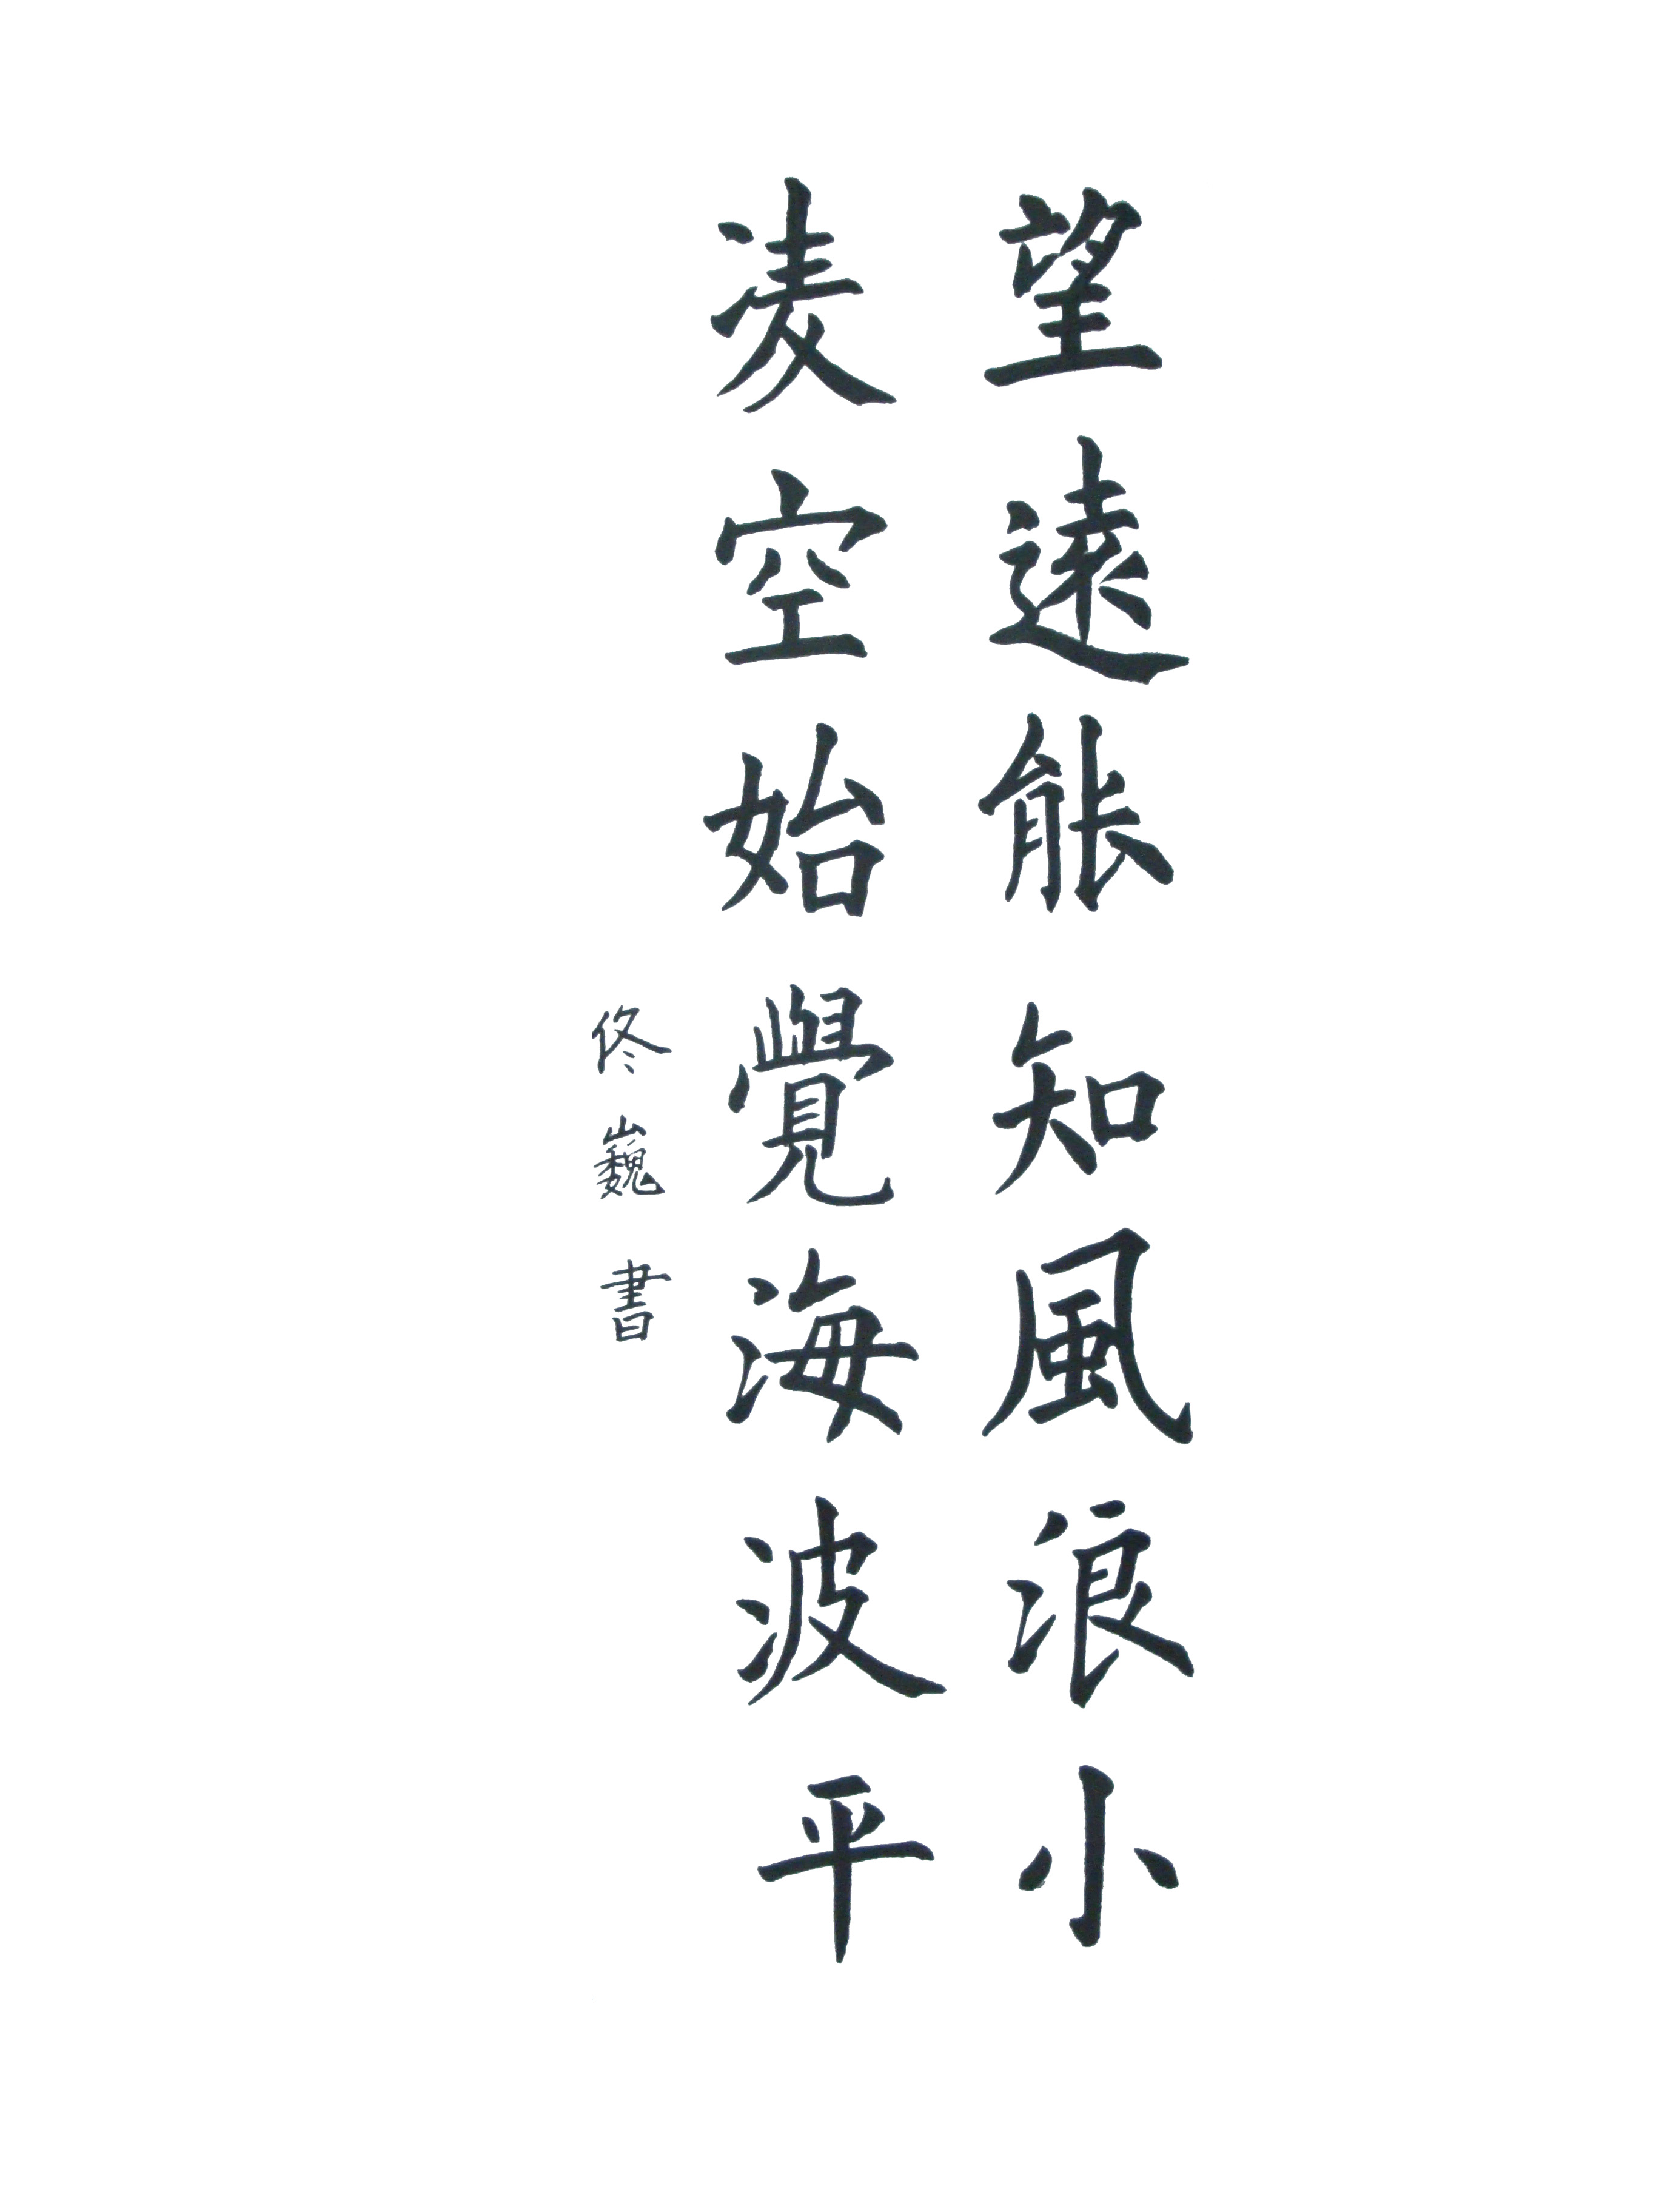 望遠能知風浪小
凌空始覺海波平
佟巍書